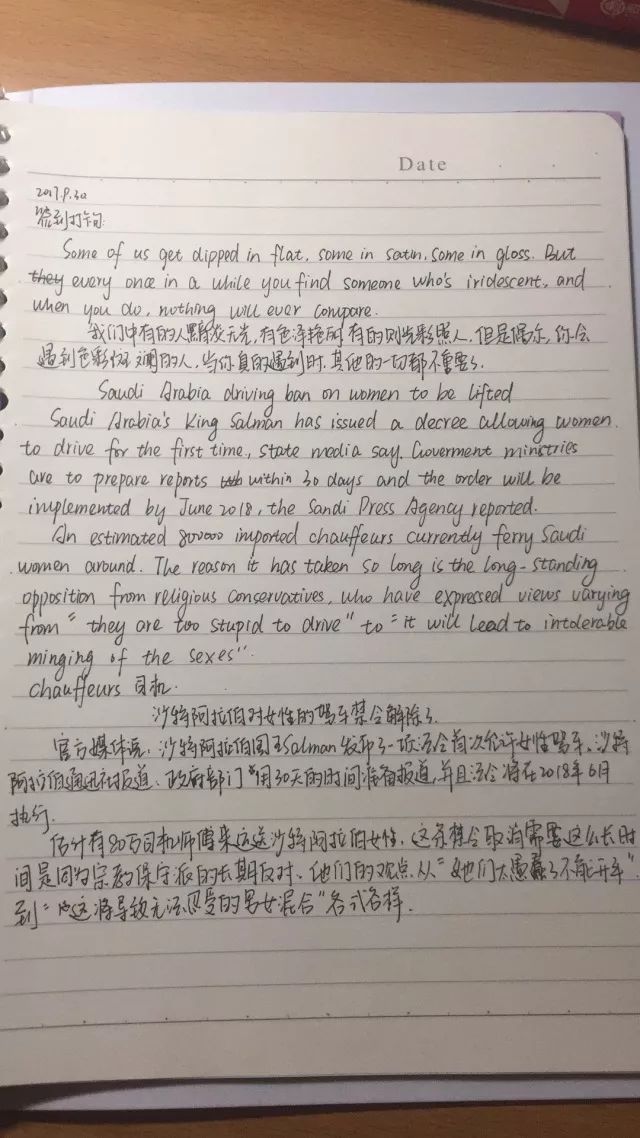 Date
2017.9.30
签到打卡句:
Some of us get dipped in flat, some in satin, some in gloss. But
they every once in a while you find someone who's iridescent, and
when you do, nothing will ever compare.
我们中有的人黯淡无光,有色泽艳丽,有的则光彩照人,但是偶尔,你会
遇到色彩斑斓的人,当你真的遇到时,其他的一切都不重要了.
Saudi Arabia driving ban on women to be lifted
Saudi Arabia's King Salman has issued a decree allowing women
to drive for the first time, state media say. Goverment ministries
are to prepare reports within 30 days and the order will be
implemented by June 2018, the Sandi Press Agency reported.
An estimated 800000 imported chauffeurs currently ferry Saudi
women around. The reason it has taken so long is the long-standing
opposition from religious conservatives, who have expressed views varying
from "they are too stupid to drive" to "it will lead to intolerable
minging of the sexes".
chauffeurs 司机.
沙特阿拉伯对女性的驾车禁令解除了
官方媒体说,沙特阿拉伯国王Salman发布了一项法令首次允许女性驾车,沙特
阿拉伯通讯社报道,政府部门用30天的时间准备报道,并且法令将在2018年6月
执行.
估计有80万司机师傅来运送沙特阿拉伯女性,这条禁令取消需要这么长时
间是因为宗教保守派的长期反对,他们的观点从"她们太愚蠢了不能开车"
到"这将导致无法忍受的男女混合"各式各样.